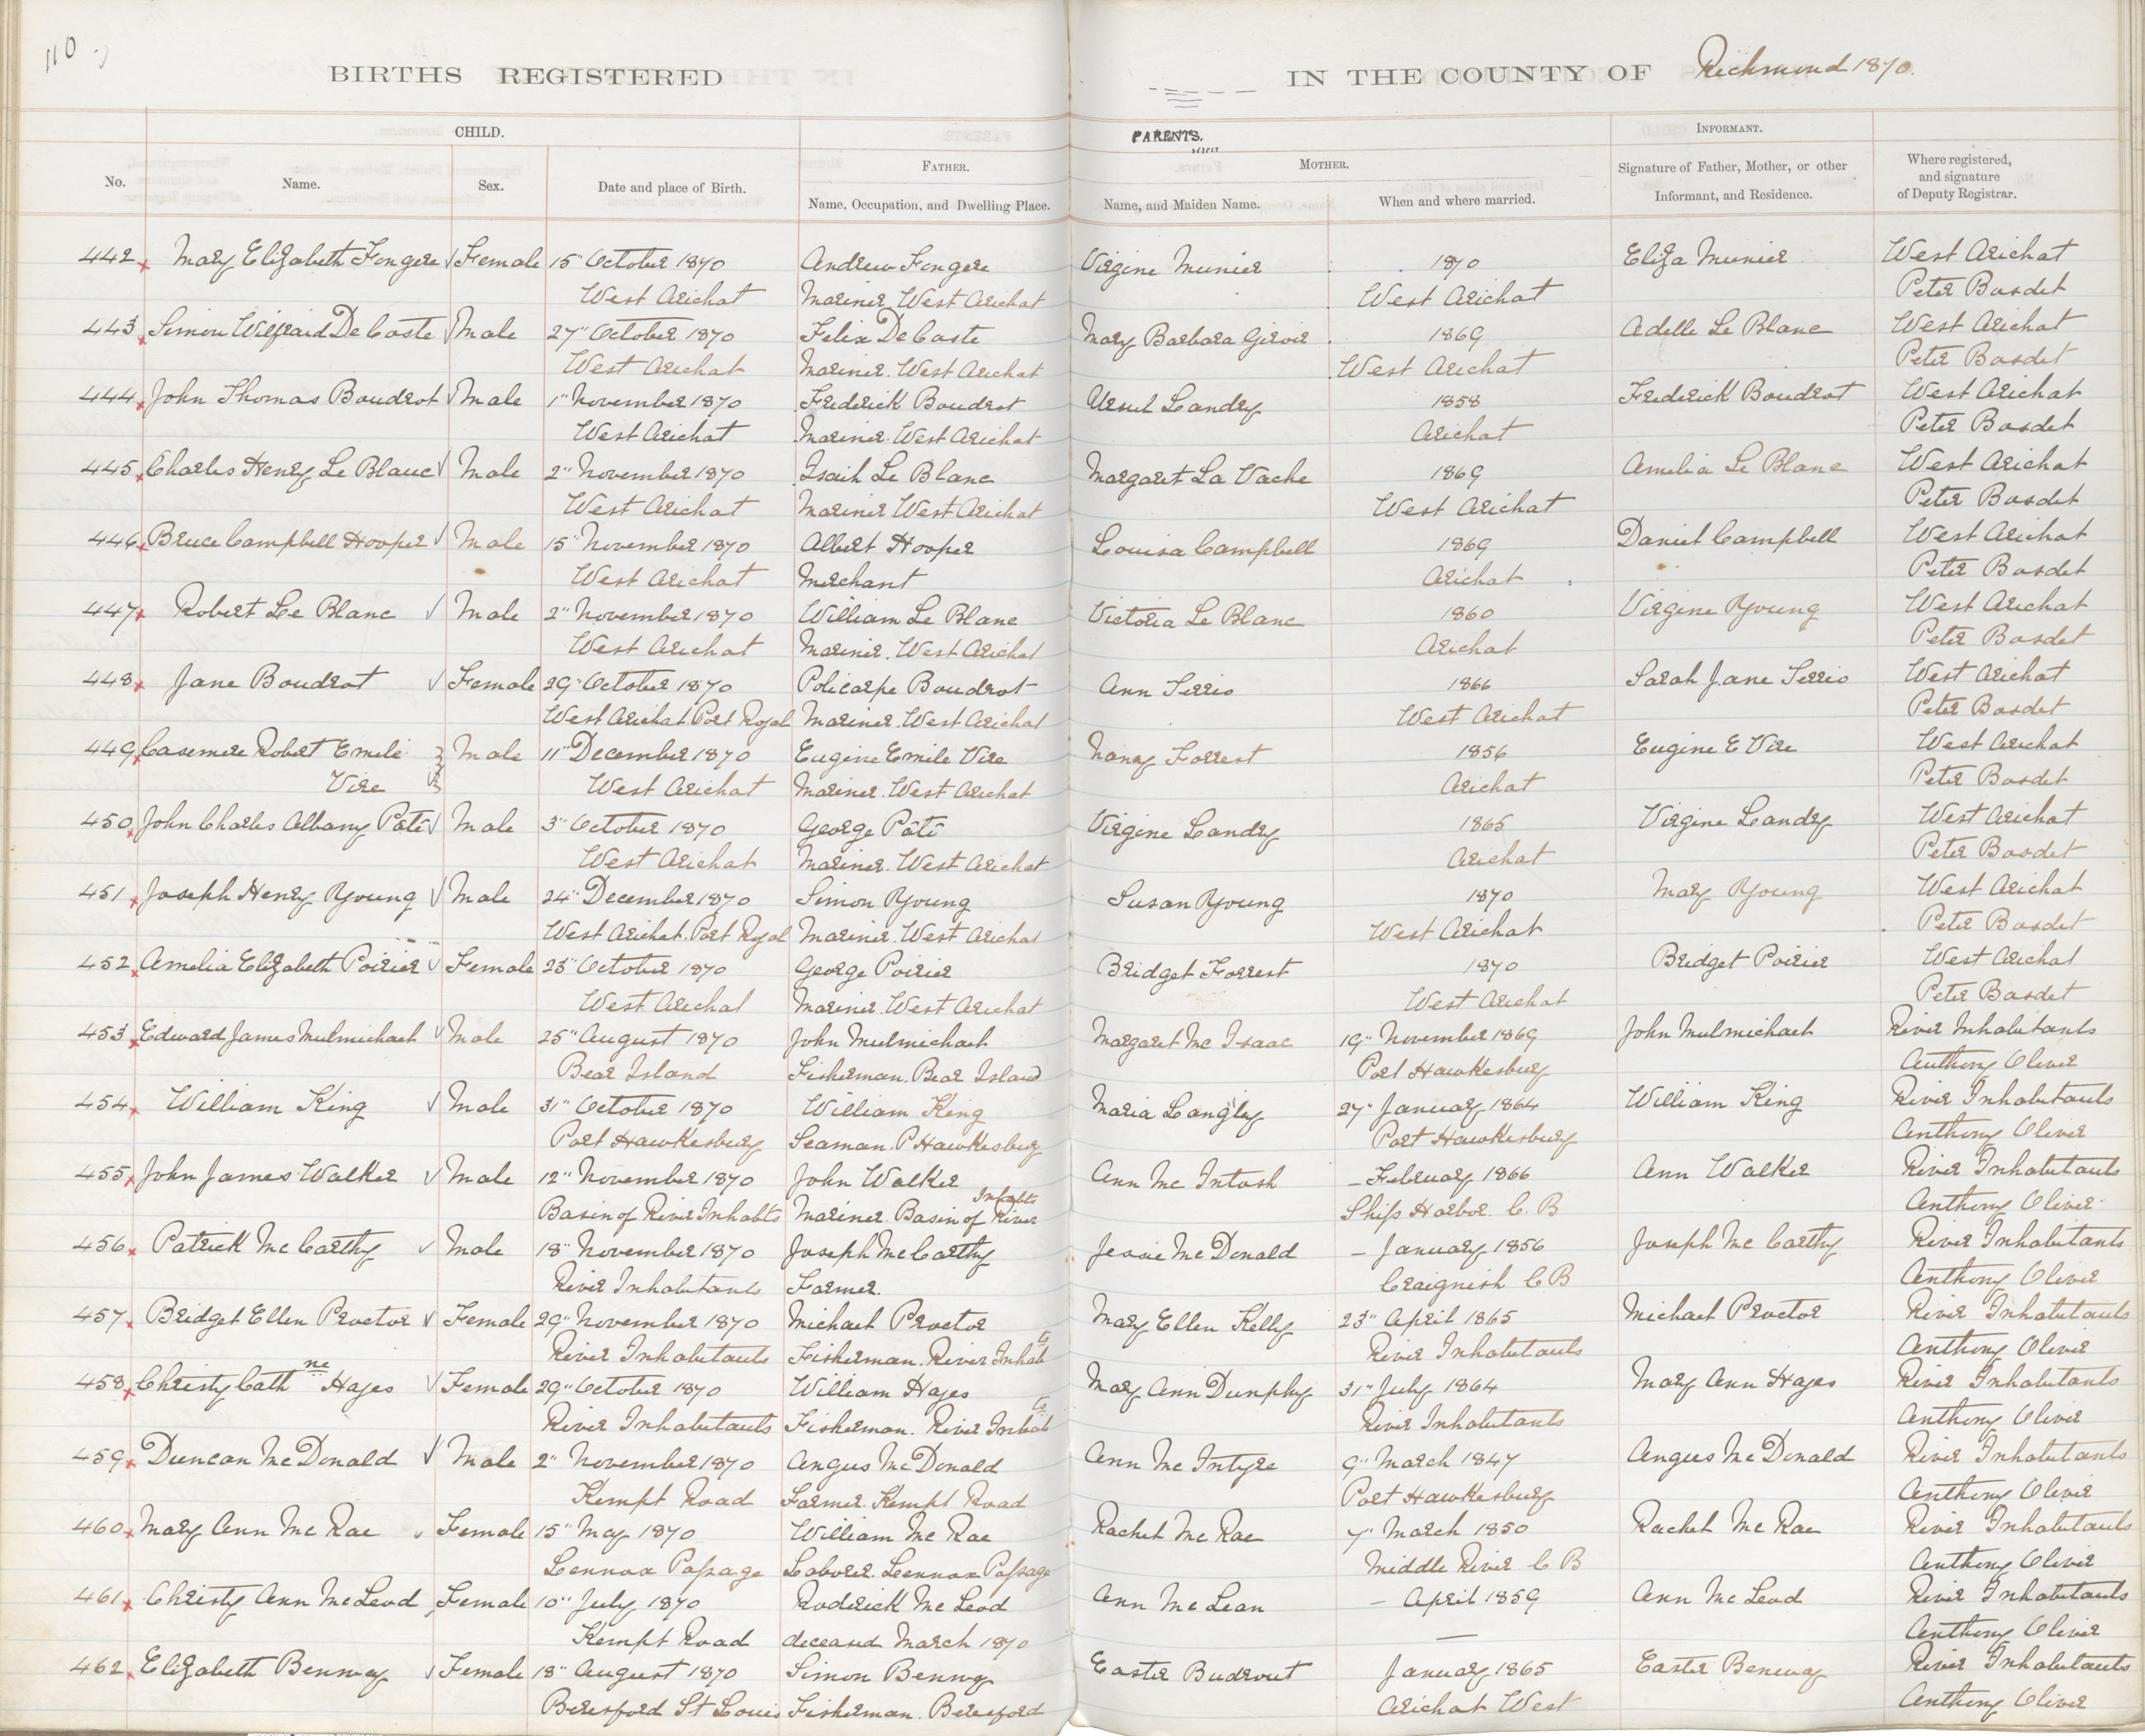 110
BIRTHS REGISTERED IN THE COUNTY OF Richmond 1870.
CHILD. PARENTS. INFORMANT.
No. Name. Sex. Date and place of Birth. FATHER. Name, Occupation, and Dwelling Place. MOTHER. Name, and Maiden Name. When and where married. Signature of Father, Mother, or other Informant, and Residence. Where registered, and signature of Deputy Registrar.
442 Mary Elizabeth Fougere Female 15" October 1870 Andrew Fougere Virgine Munier 1870 Eliza Munier West Arichat
West Arichat Mariner West Arichat West Arichat Peter Bosdet
443 Simon Wilfraid De Coste Male 27" October 1870 Felix De Coste Mary Barbara Giroir 1869 Adelle Le Blanc West Arichat
West Arichat Mariner. West Arichat West Arichat Peter Bosdet
444 John Thomas Boudrot Male 1" November 1870 Frederick Boudrot Ursul Landry 1858 Frederick Boudrot West Arichat
West Arichat Mariner. West Arichat Arichat Peter Bosdet
445 Charles Henry Le Blanc Male 2" November 1870 Isaih Le Blanc Margaret La Vache 1869 Amelia Le Blanc West Arichat
West Arichat Mariner West Arichat West Arichat Peter Bosdet
446 Bruce Campbell Hooper Male 15" November 1870 Albert Hooper Louisa Campbell 1869 Daniel Campbell West Arichat
West Arichat Merchant Arichat Peter Bosdet
447 Robert Le Blanc Male 2" November 1870 William Le Blanc Victoria Le Blanc 1860 Virgine Young West Arichat
West Arichat Mariner. West Arichat Arichat Peter Bosdet
448 Jane Boudrot Female 29" October 1870 Policarpe Boudrot Ann Terrio 1866 Sarah Jane Terrio West Arichat
West Arichat. Port Royal Mariner. West Arichat West Arichat Peter Bosdet
449 Casemere Robert Emile Male 11" December 1870 Eugine Emile Vire Nancy Forrest 1856 Eugine E Vire West Arichat
Vire West Arichat Mariner. West Arichat Arichat Peter Bosdet
450 John Charles Albany Pâté Male 3" October 1870 George Pâté Virgine Landry 1865 Virgine Landry West Arichat
West Arichat Mariner. West Arichat Arichat Peter Bosdet
451 Joseph Henry Young Male 24" December 1870 Simon Young Susan Young 1870 Mary Young West Arichat
West Arichat. Port Royal Mariner. West Arichat West Arichat Peter Bosdet
452 Amelia Elizabeth Poirier Female 23" October 1870 George Poirier Bridget Forrest 1870 Bridget Poirier West Arichat
West Arichat Mariner. West Arichat West Arichat Peter Bosdet
453 Edward James Mulmichael Male 25" August 1870 John Mulmichael Margaret Mc Isaac 19" November 1869 John Mulmichael River Inhabitants
Bear Island Fisherman. Bear Island Port Hawkesbury Anthony Oliver
454 William King Male 31" October 1870 William King Maria Langley 27" January 1864 William King River Inhabitants
Port Hawkesbury Seaman. P Hawkesbury Port Hawkesbury Anthony Oliver
455 John James Walker Male 12" November 1870 John Walker Ann Mc Intosh – February 1866 Ann Walker River Inhabitants
Basin of River Inhabts Mariner. Basin of River Inhabts Ship Harbor. C. B Anthony Oliver
456 Patrick Mc Carthy Male 18" November 1870 Joseph Mc Carthy Jessie Mc Donald – January 1856 Joseph Mc Carthy River Inhabitants
River Inhabitants Farmer. Craignish C B Anthony Oliver
457 Bridget Ellen Proctor Female 29" November 1870 Michael Proctor Mary Ellen Kelly 23" April 1865 Michael Proctor River Inhabitants
River Inhabitants Fisherman. River Inhabts River Inhabitants Anthony Oliver
458 Christy Cathne Hayes Female 29" October 1870 William Hayes Mary Ann Dunphy 31" July 1864 Mary Ann Hayes River Inhabitants
River Inhabitants Fisherman. River Inhabts River Inhabitants Anthony Oliver
459 Duncan Mc Donald Male 2" November 1870 Angus Mc Donald Ann Mc Intyre 9" March 1847 Angus Mc Donald River Inhabitants
Kempt Road Farmer. Kempt Road Port Hawkesbury Anthony Oliver
460 Mary Ann Mc Rae Female 15" May 1870 William Mc Rae Rachel Mc Rae 7" March 1850 Rachel Mc Rae River Inhabitants
Lennox Passage Laborer. Lennox Passage Middle River C B Anthony Oliver
461 Christy Ann Mc Leod Female 10" July 1870 Roderick Mc Leod Ann Mc Lean – April 1859 Ann Mc Leod River Inhabitants
Kempt Road deceased March 1870 — Anthony Oliver
462 Elizabeth Benway Female 18" August 1870 Simon Benway Easter Budrout January 1865 Easter Benway River Inhabitants
Beresford St Louis Fisherman. Beresford Arichat West Anthony Oliver